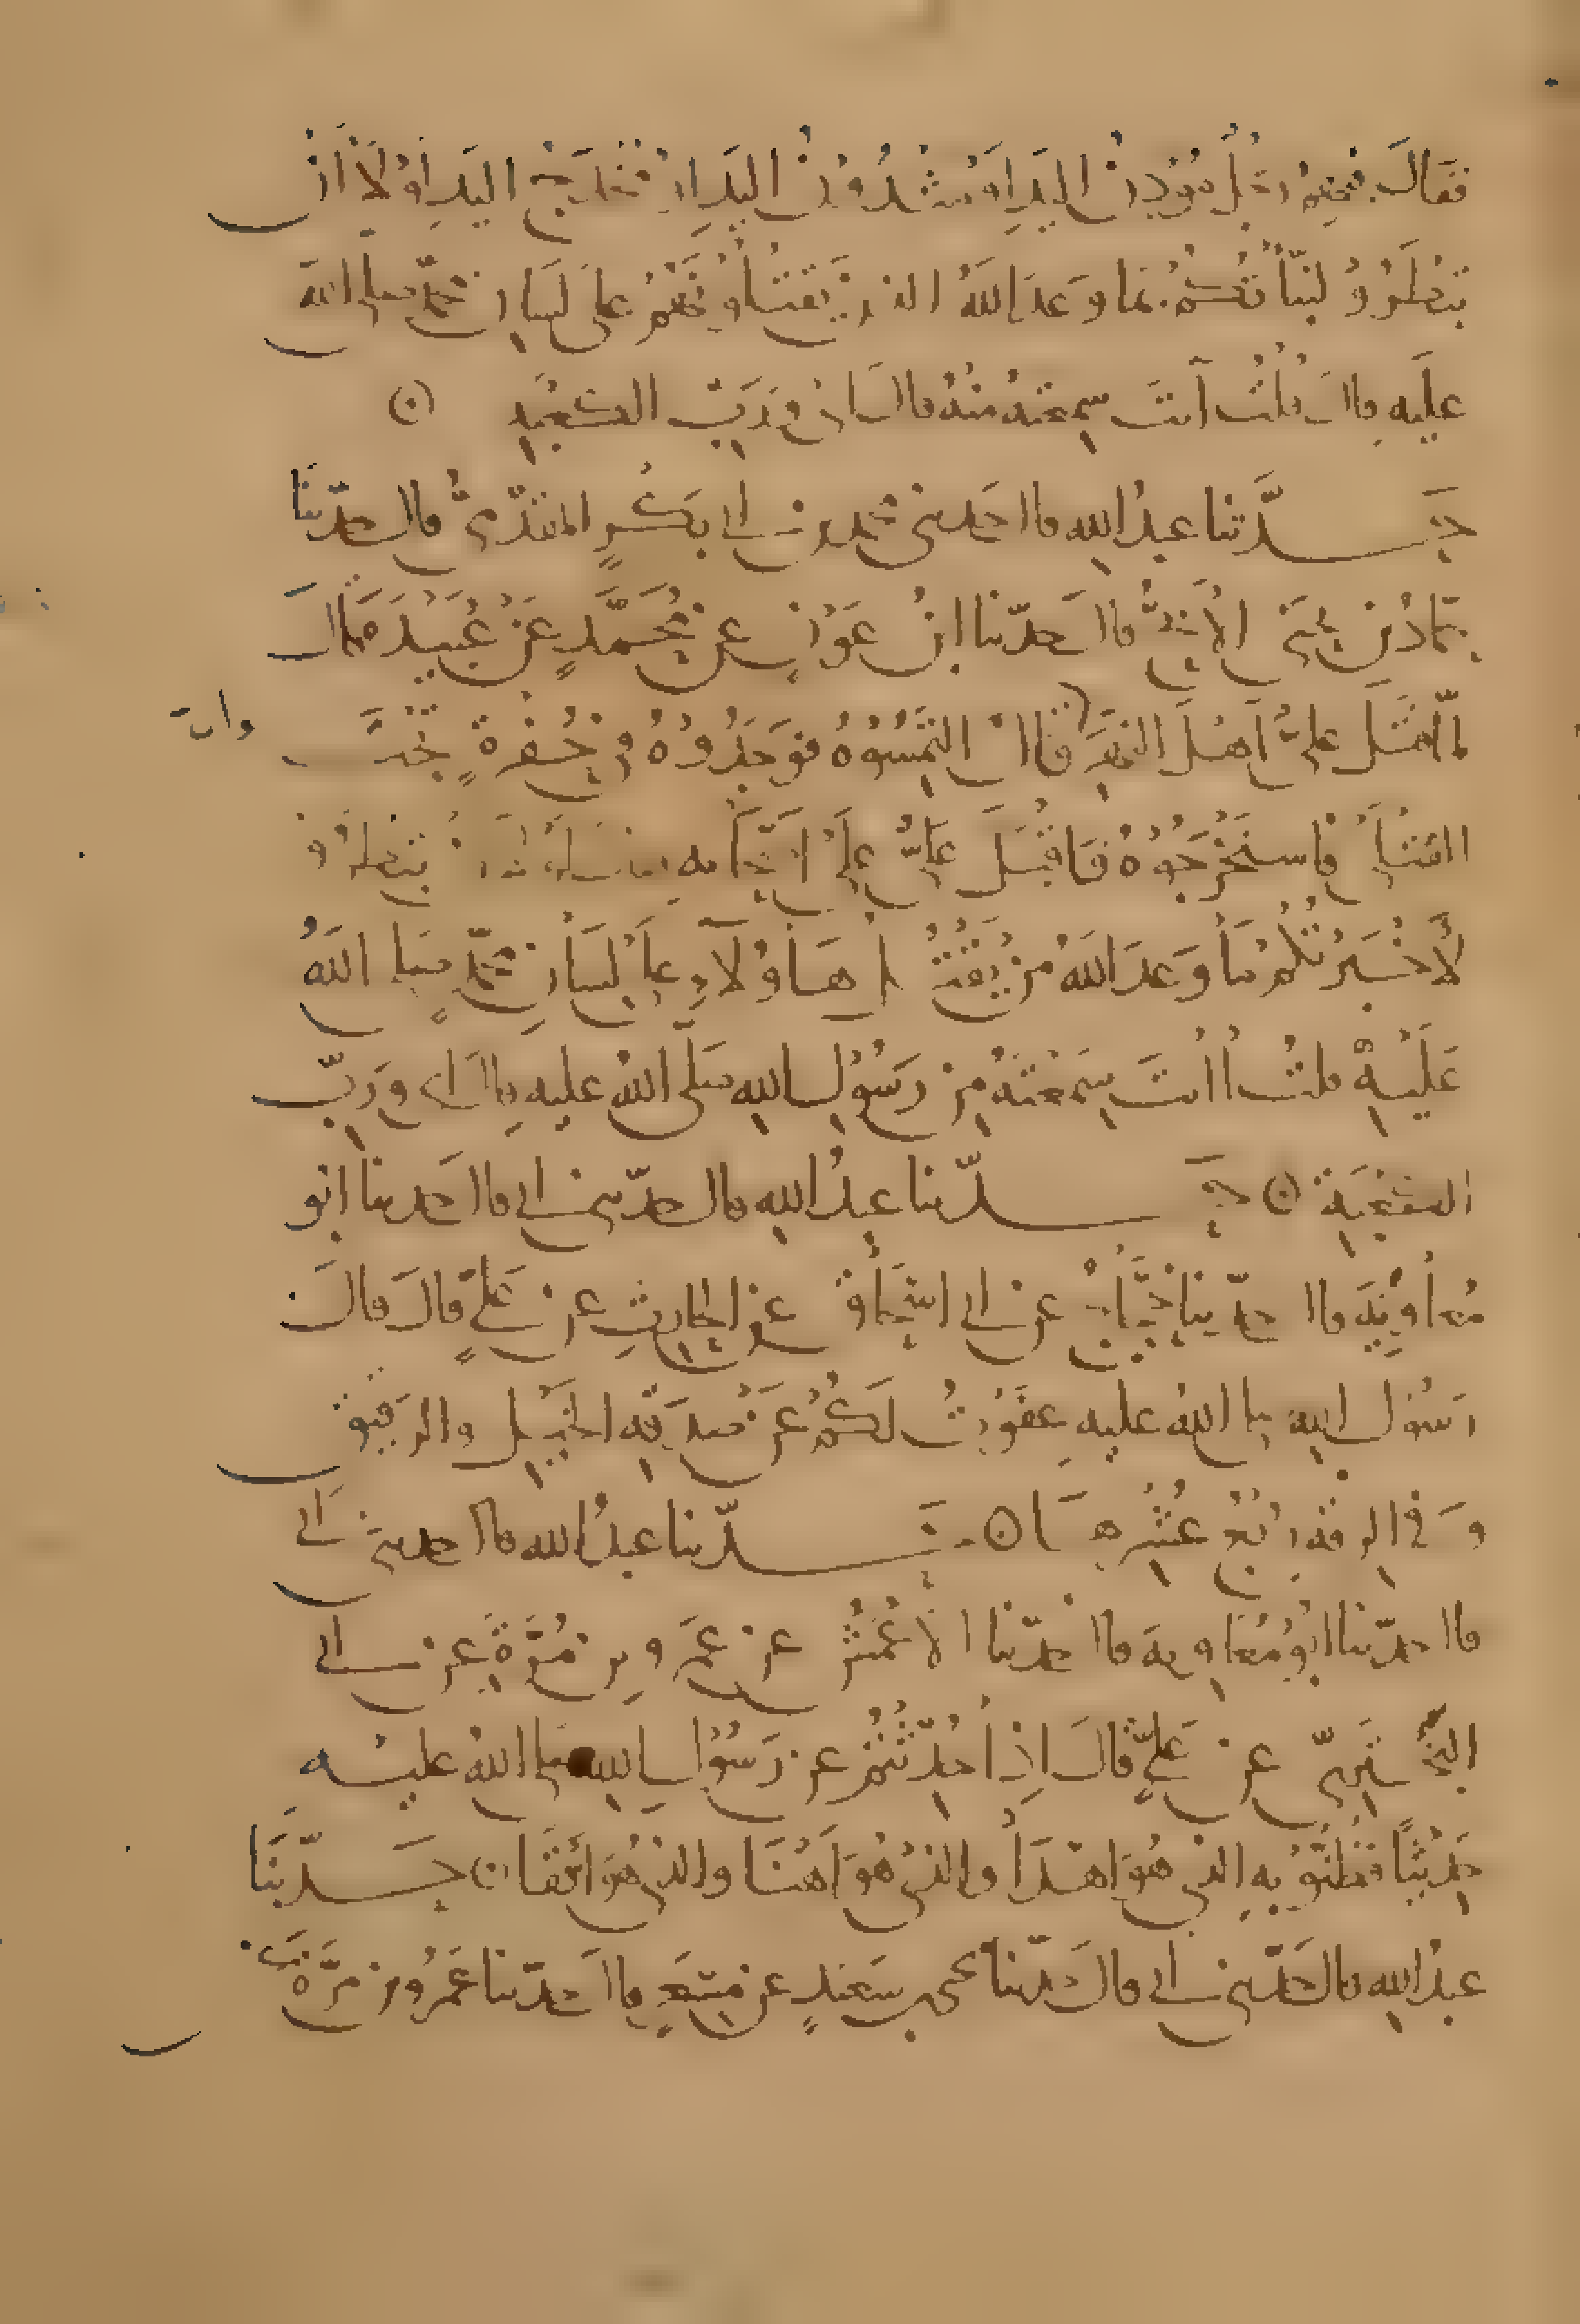 فقال فيهم رجل مودن اليد او مثدون اليد او مخدج اليد ولولا ان
تبطروا لنباتكم بما وعد الله الذين يقتلونهم على لسان محمد صلى الله
عليه قال قلت انت سمعته منه قال اي ورب الكعبة
حدثنا عبد الله قال حدثني محمد بن ابي بكر المقدمي قال حدثنا
حماد بن يحيى الابح قال حدثنا ابن عون عن محمد عن عبيدة قال
لما قتل علي اهل النهر قال التمسوه فوجدوه في حفرة تحت
القتلى فاستخرجوه فاقبل علي على اصحابه فقال لولا ان تبطروا
لاخبرتكم ما وعد الله من يقتل هاولاء على لسان محمد صلى الله
عليه قلت اانت سمعته من رسول الله صلى الله عليه قال اي ورب
الكعبة حدثنا عبد الله قال حدثني ابي قال حدثنا ابو
معاوية قال حدثنا حجاج عن ابي اسحاق عن الحارث عن علي قال قال
رسول الله صلى الله عليه عفوت لكم عن صدقة الخيل والرقيق
وفي الرقة ربع عشرها حدثنا عبد الله قال حدثني ابي
قال حدثنا ابو معاوية قال حدثنا الاعمش عن عمرو بن مرة عن ابي
البختري عن علي قال اذا حدثتم عن رسول الله صلى الله عليه
حديثا فظنوا به الذي هو اهدا والذي هو اهنا والذي هو اتقا حدثنا
عبد الله قال حدثني ابي قال حدثنا يحيى بن سعيد عن مسعر قال حدثنا عمرو بن مرة عن